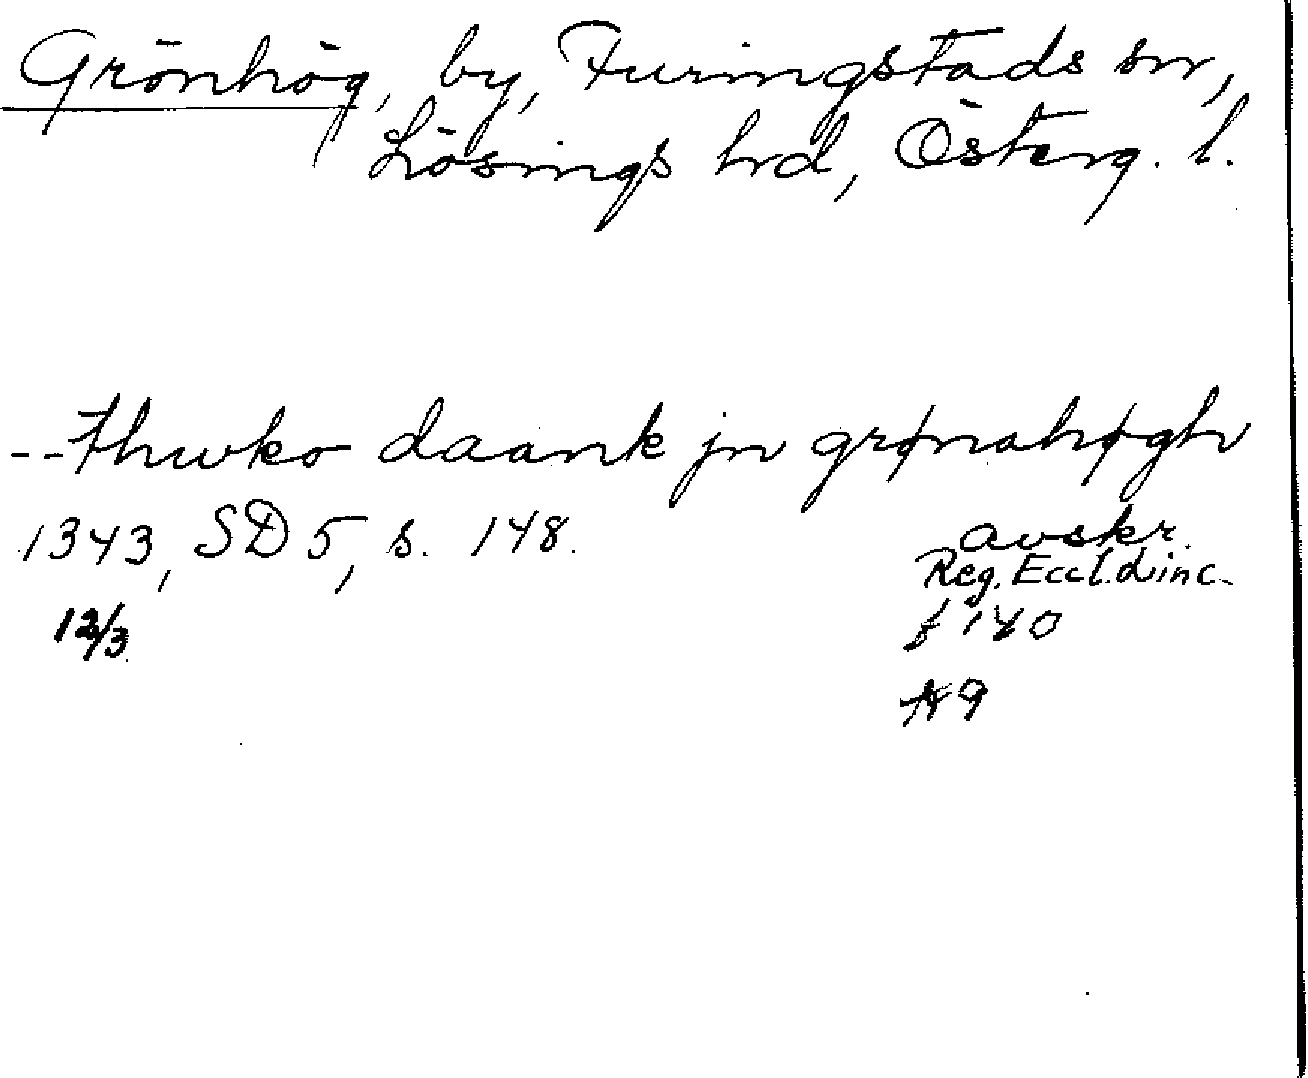 Grönhög, by, Furingstads sn,
Lösings hd, Österg. l.
--Thuko daank jn grønahøgh
1343, SD 5, s. 148.
avskr.
Reg. Eccl. Linc.
f 140
12/3
A9